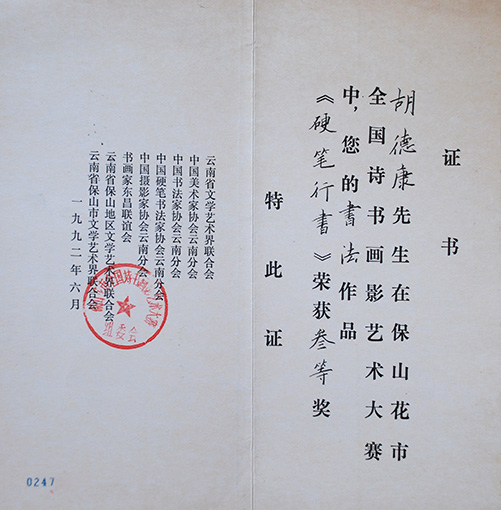 证书
胡德康先生在保山花市
全国诗书画影艺术大赛
中，您的书法作品
《硬笔行书》荣获叁等奖
特此证
云南省文学艺术界联合会
中国美术家协会云南分会
中国书法家协会云南分会
中国硬笔书法家协会云南分会
中国摄影家协会云南分会
书画家东昌联谊会
云南省保山地区文学艺术界联合会
云南省保山市文学艺术界联合会
一九九二年六月
0247